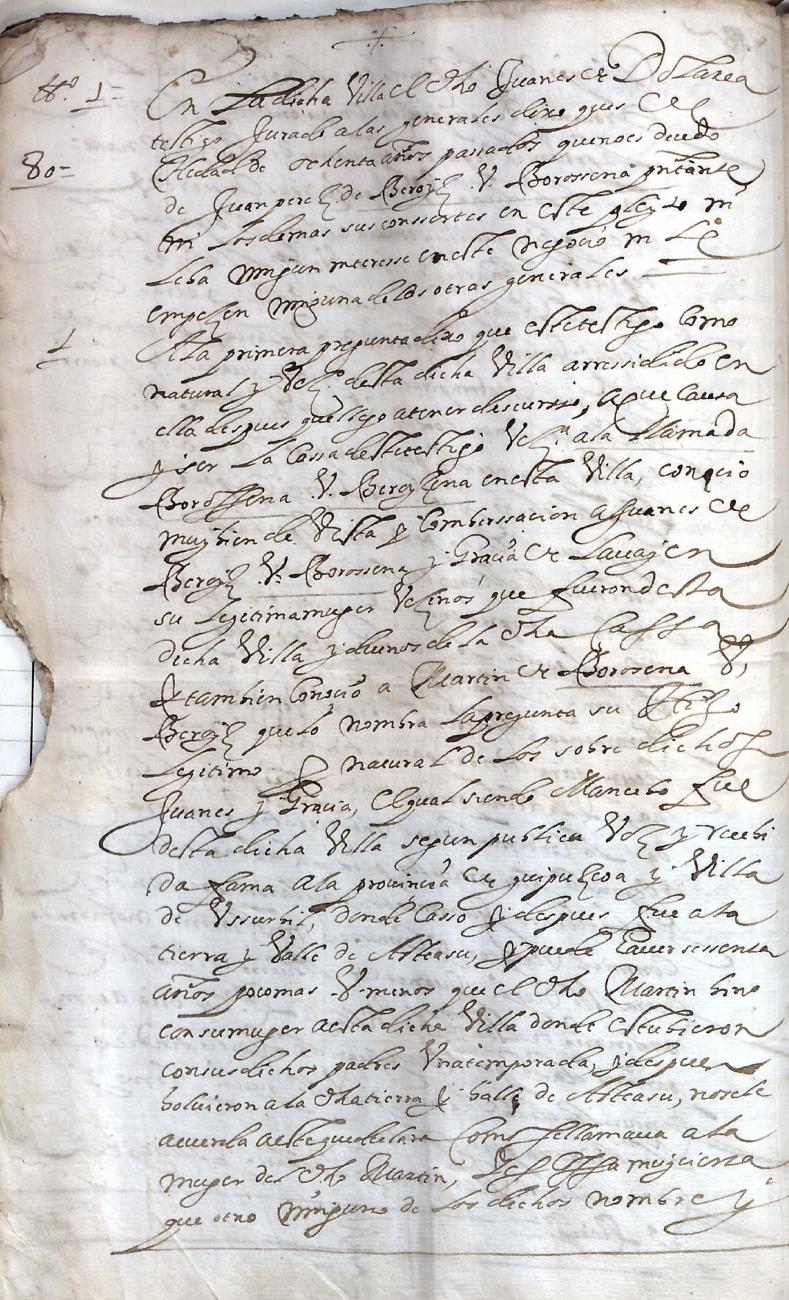 +
tº. 1=
En La dicha Villa el dho Juanes de Dolarea
testigo Jurado a las generales dixo ques de
80=
Hedad de ochenta años passados que no es deudo
de Juan perez de Beroiz V. Borossena pntante,
ni Los demas sus conssortes en este pleyto ni
Leba ningun interesse en este negocio ni Le
empezen ninguna de las otras generales
1
A la primera pregunta dixo que este testigo Como
natural y Vezº. desta dicha Villa a rressidido en
ella despues que llego a tener discurso, A que Caussa
y ser La Cassa deste testigo Vezna a la Llamada
Borossena V. Beroizena en esta Villa, conocio
muy bien de Vista y Comberssacion a Juanes de
Beroiz V. Borossena y Gracia de
su Legitima muger Vezinos que fueron desta
dicha Villa y duenos de la dha Cassa
y tambien Conocio a Martin de Borosena V,
Beroiz que lo nombra La pregunta su Hijo
Legitimo y natural de Los sobre dichos
Juanes y Gracia, el qual siendo Mancebo fue
desta dicha Villa segun publica Voz y rrecebi
da fama a la provincia de guipuzcoa y Villa
de Vssurbil, donde Casso y despues fue a la
tierra y Valle de Asteasu, y puede haver sessenta
años poco mas V menos que el dho Martin bino
con su muger a esta dicha Villa donde estubieron
con sus dichos padres Vna temporada, y despues
bolvieron a la dha tierra y balle de Asteasu, no se le
acuerda a este que declara Como se llamava a la
muger del dho Martin, muy cierta
que otro ninguno de Los dichos nombre y